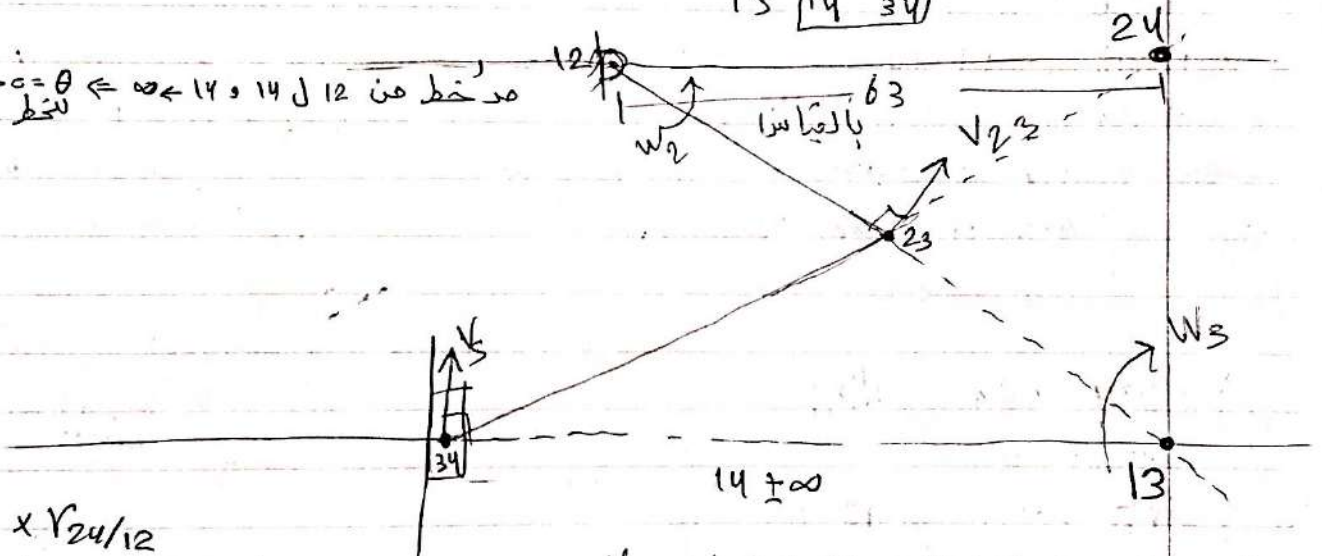 13 14 34
24
12
مد خط من 12 ل 14 و 14 → ∞ ⇒ θ = 0
للخط
63
بالقياس
W2
V23
23
V5
W3
34
14 ± ∞
13
x V24/12